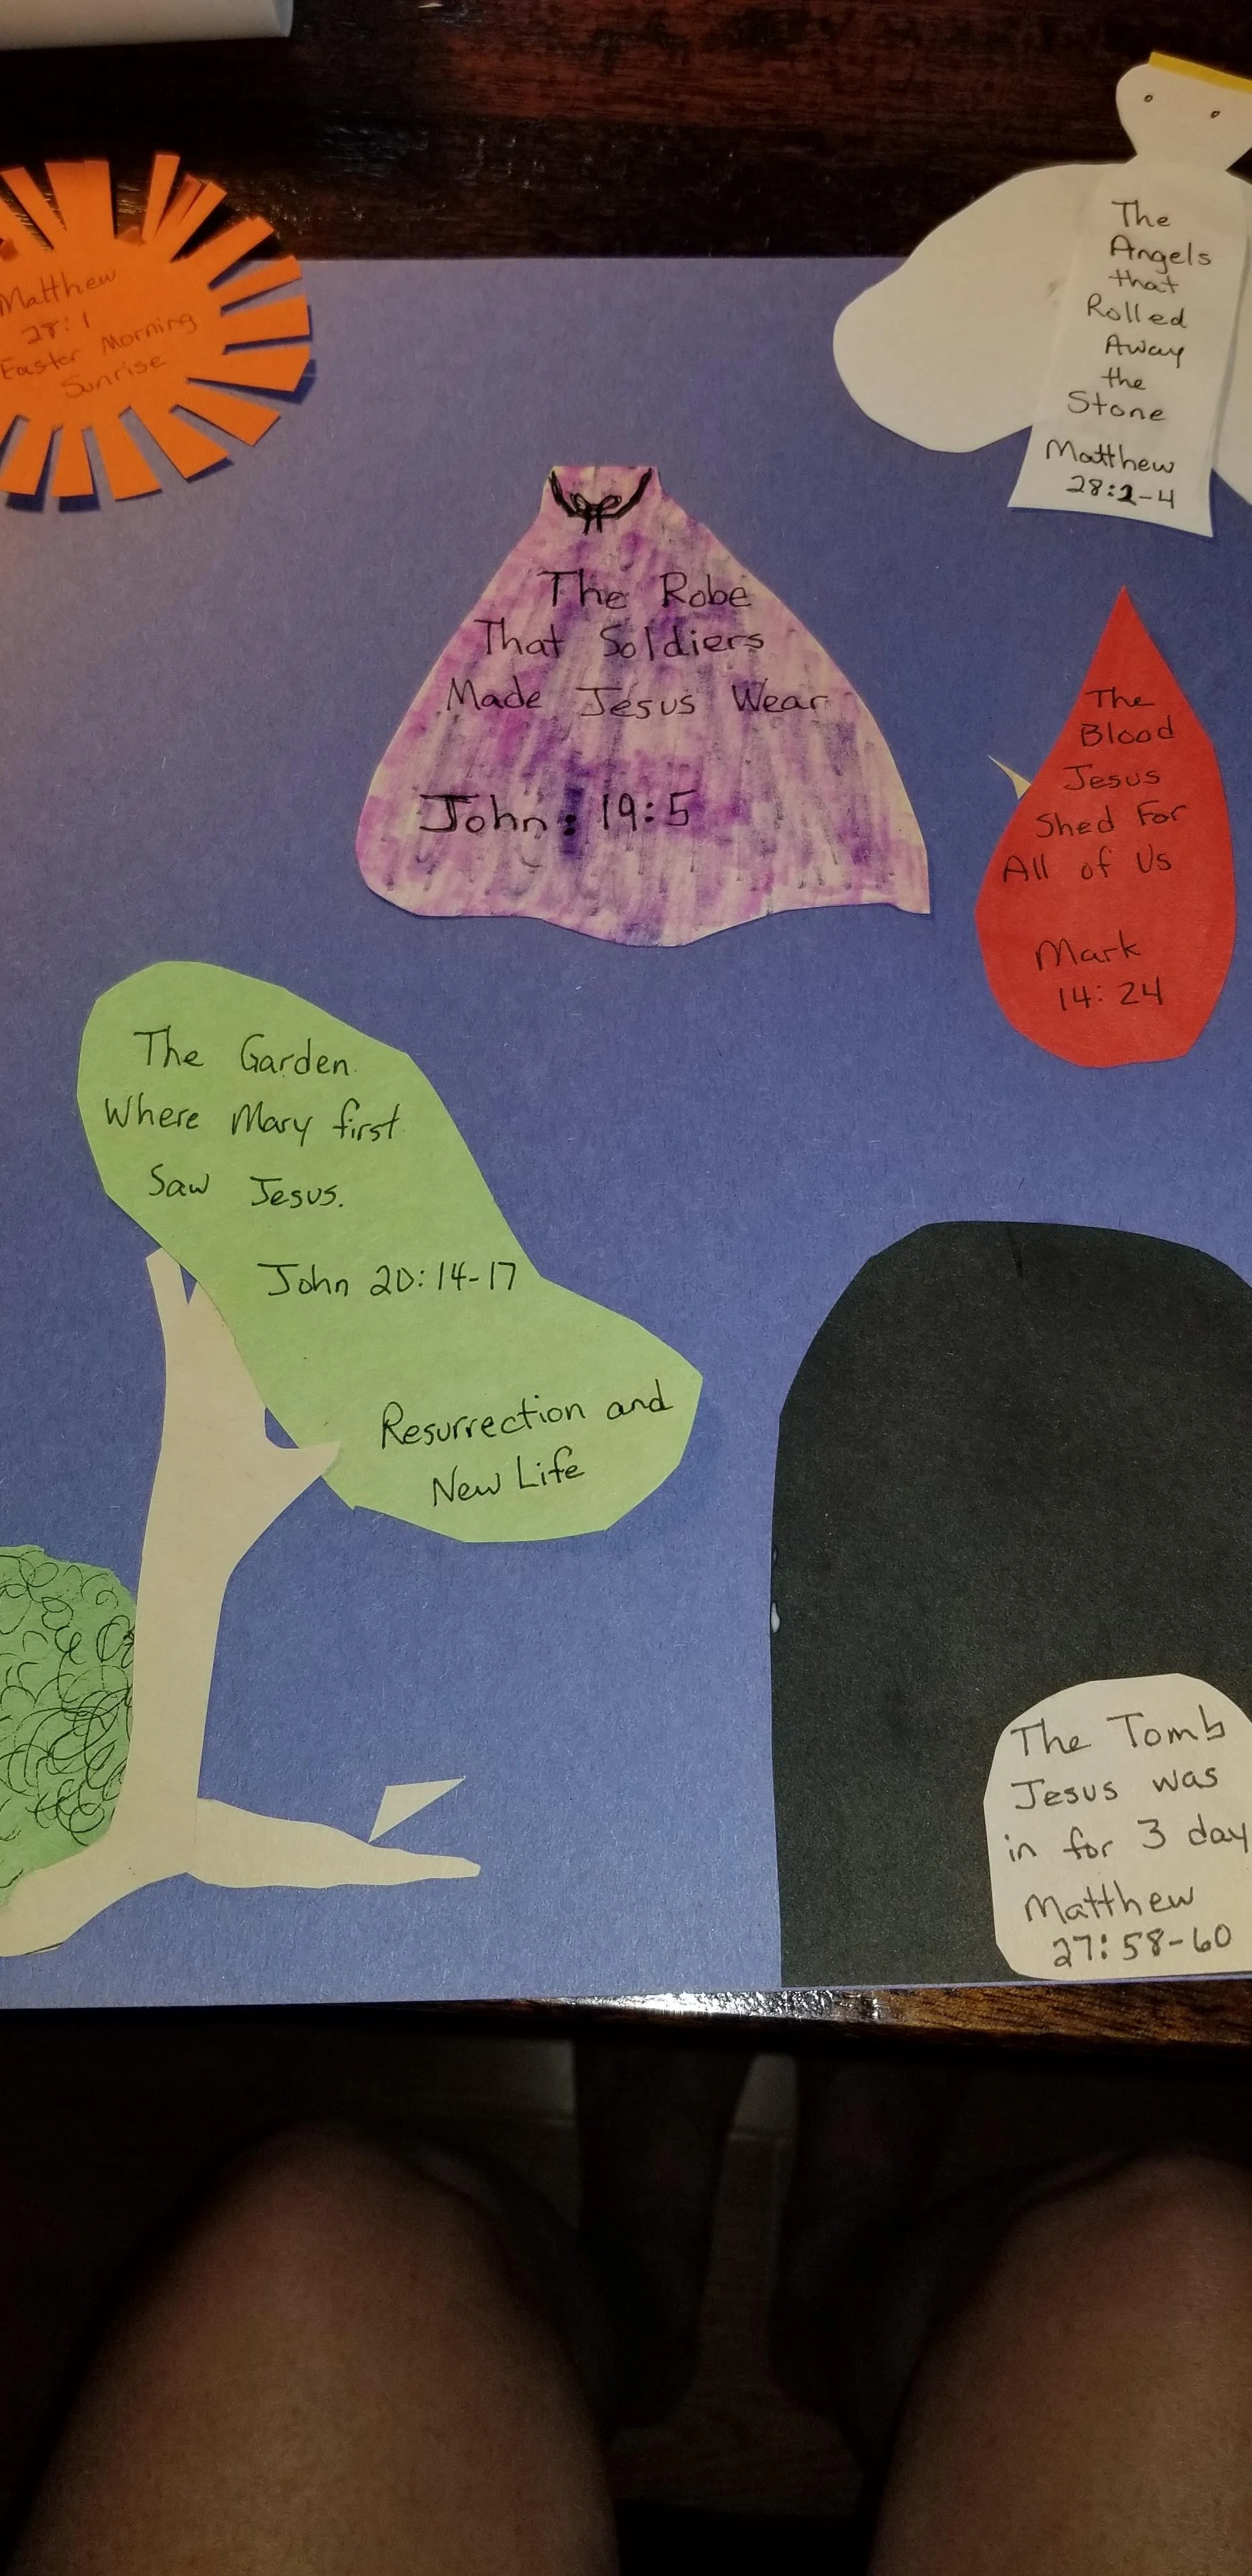 Matthew
28:1
Easter Morning
Sunrise
The
Angels
that
Rolled
Away
the
Stone
Matthew
28:2-4
The Robe
That Soldiers
Made Jesus Wear
John: 19:5
The
Blood
Jesus
Shed For
All of Us
Mark
14:24
The Garden
Where Mary first
Saw Jesus.
John 20:14-17
Resurrection and
New Life
The Tomb
Jesus was
in for 3 day
Matthew
27:58-60